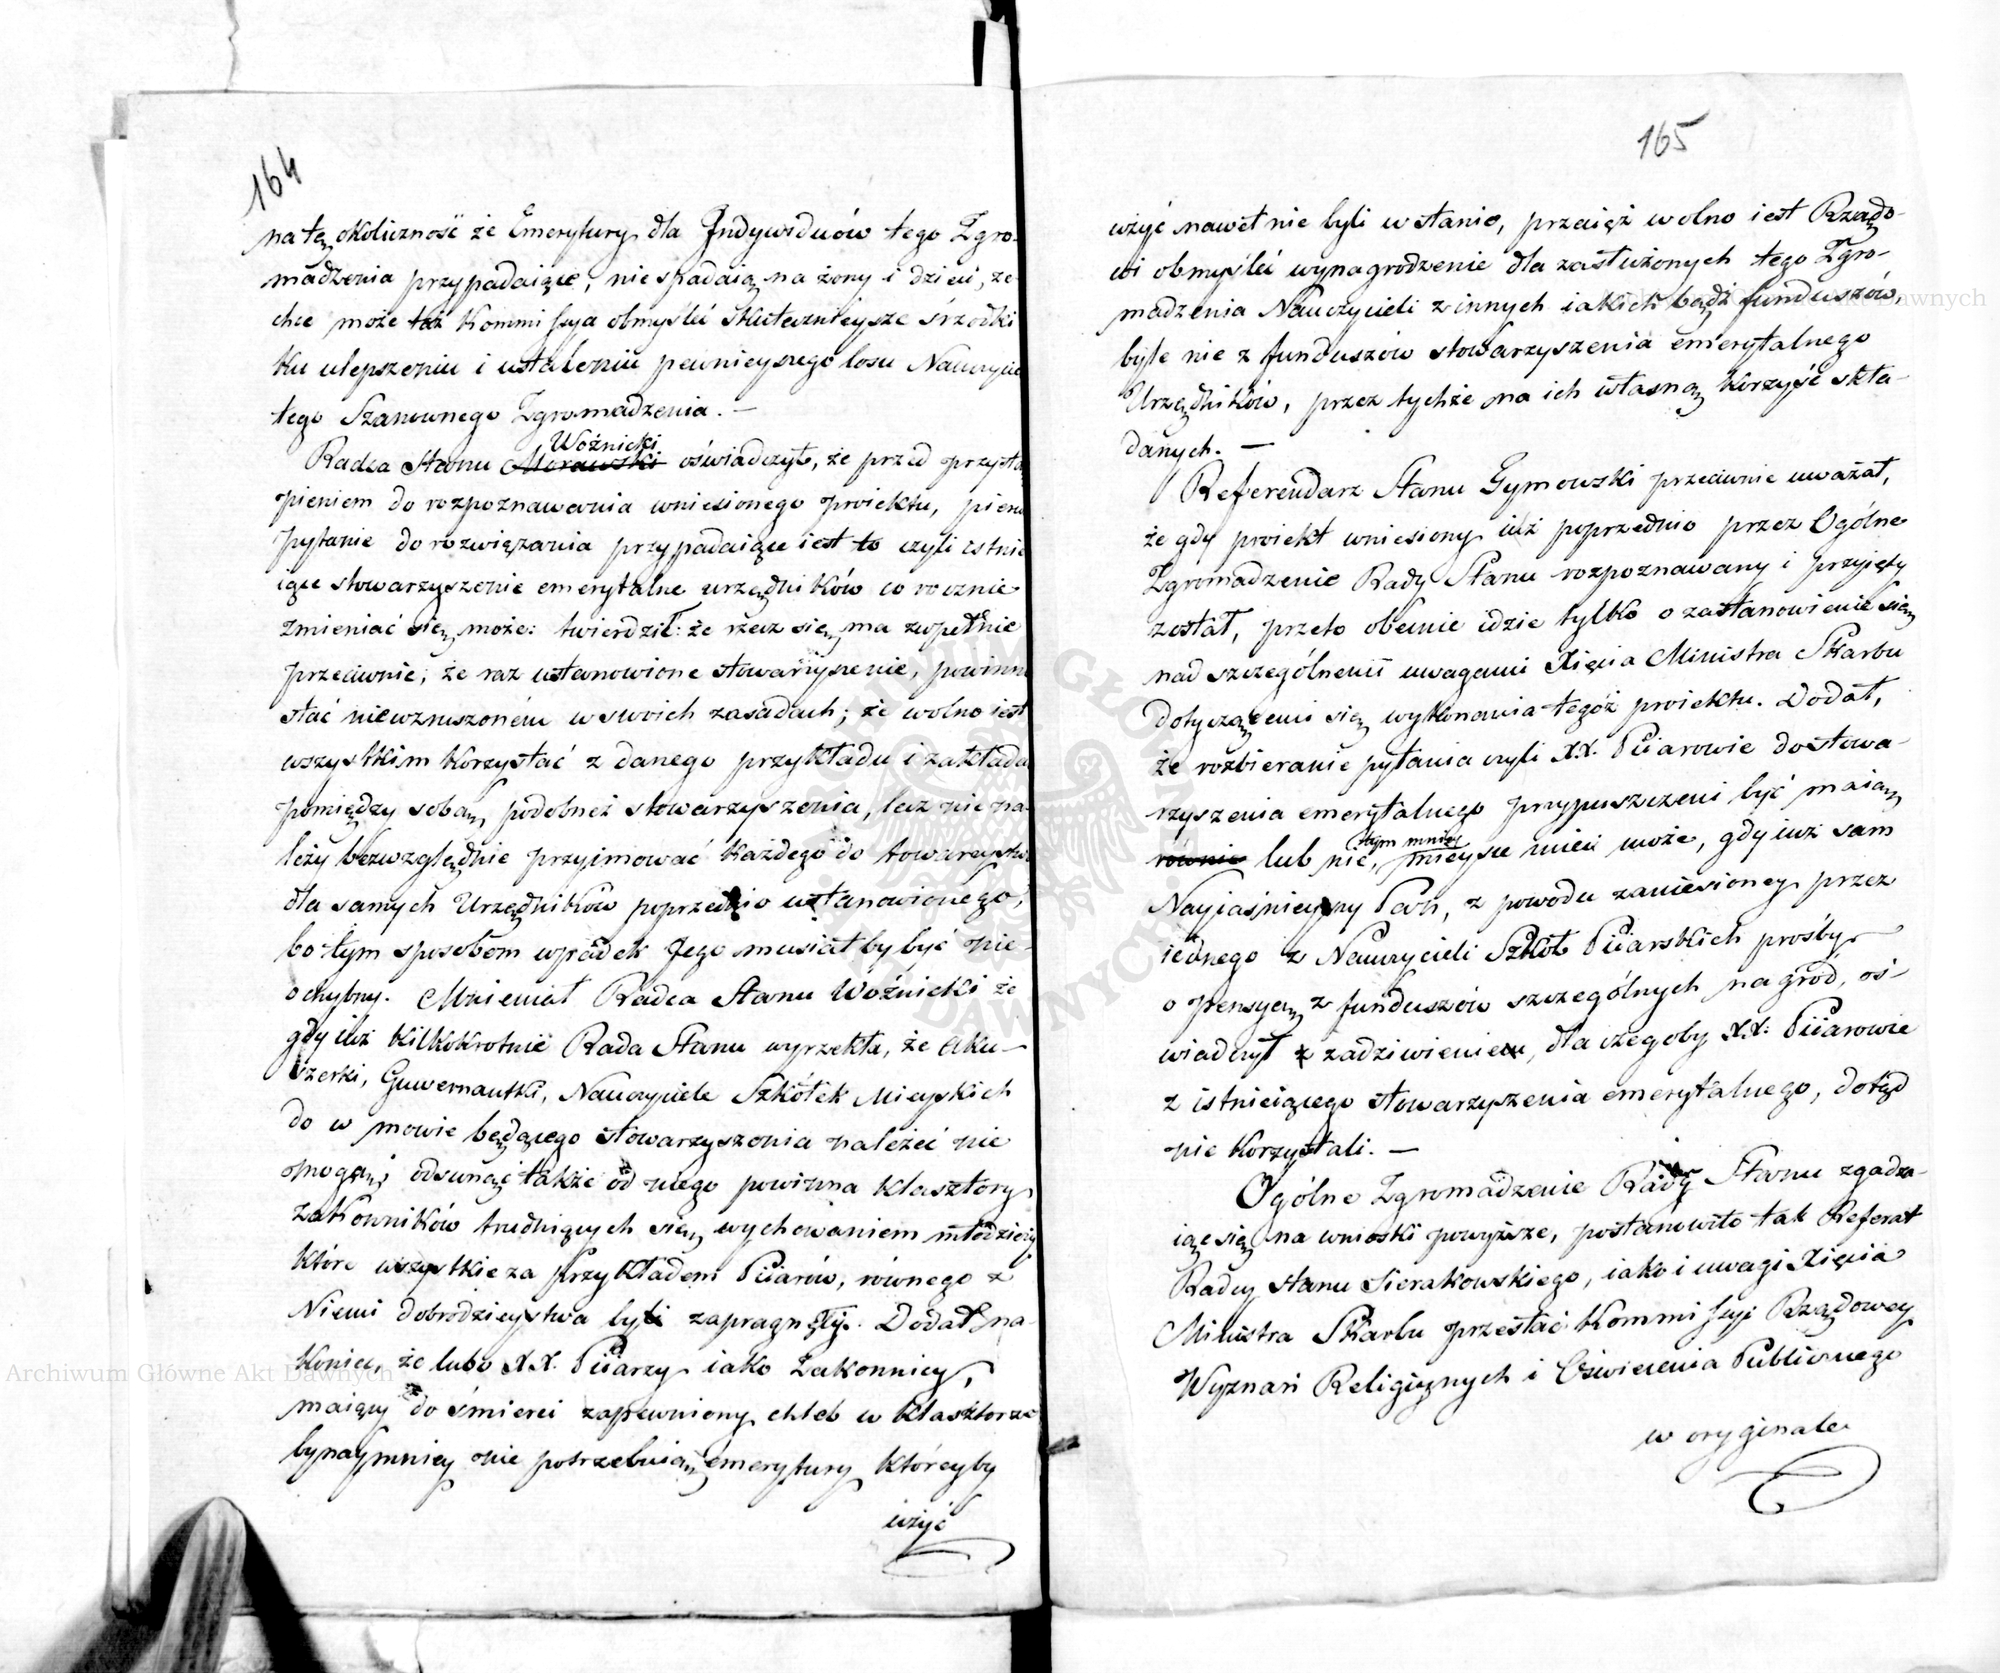 164
na tę okoliczność że Emerytury dla Indywiduów tego Zgro-
madzenia przypadaiące, nie spadaią na żony i dzieci, ze-
chce może też Kommissya obmyślić skutecznieysze śrzodki
ku ulepszeniu i ustaleniu pewnieyszego losu Nauczycie
tego Szanownego Zgromadzenia. —
Woźnicki
Radca Stanu Morawski oświadczył, że przed przystą
pieniem do rozpoznawania wniesionego proiektu, pierw
pytanie do rozwiązania przypadaiące iest to czyli istnie
iące stowarzyszenie emerytalne urzędników co rocznie
zmieniać się może: twierdził: że rzecz się ma zupełnie
przeciwnie; że raz ustanowione stowarzyszenie, powinno
stać niewzruszoném w swoich zasadach; że wolno iest
wszystkim korzystać z danego przykładu i zakłada
pomiędzy sobą podobneż stowarzyszenia, lecz nie na-
leży bezwzględnie przyimować każdego do towarzystwa
dla samych Urzędników poprzednio ustanowionego,
bo tym sposobem upadek Jego musiałby być nie-
ochybny. Mniemał Radca Stanu Woźnicki że
gdy iuż kilkokrotnie Rada Stanu wyrzekła, że Aku-
szerki, Guwernantki, Nauczyciele Szkółek Mieyskich
do w mowie będącego stowarzyszenia należeć nie
mogą; odsunąć także od niego powinna klasztory
zakonników trudniących się wychowaniem młodzieży
które wszystkie za przykładem Piiarów, równego z
Niemi dobrodzieystwa by zapragnęły. Dodał na-
koniec, że lubo X.X. Piiarzy iako Zakonnicy,
maiący do śmierci zapewniony chleb w klasztorze
bynaymniey nie potrzebuią emerytury którey by
użyć
165
użyć nawet nie byli w stanie, przecięż wolno iest Rządo-
wi obmyślić wynagrodzenie dla zasłużonych tego Zgro-
madzenia Nauczycieli z innych iakich bądź funduszów,
byle nie z funduszów stowarzyszenia emerytalnego
Urzędników, przez tychże na ich własną korzyść skła-
danych. —
Referendarz Stanu Gymowski przeciwnie uważał,
że gdy proiekt wniesiony iuż poprzednio przez Ogólne
Zgromadzenie Rady Stanu rozpoznawany i przyięty
został, przeto obecnie idzie tylko o zastanowienie się
nad szczególnemi uwagami Xięcia Ministra Skarbu
dotyczącemi się wykonania tegoż proiektu. Dodał,
że rozbieranie pytania czyli X.X. Piiarowie do stowa-
rzyszenia emerytalnego przypuszczeni być maią
tym mniey
równie lub nie, mieysce mieć może, gdy iuż sam
Nayiaśnieyszy Pan, z powodu zaniesioney przez
iednego z Nauczycieli Szkół Piiarskich prośby
o pensyą z funduszów szczególnych nagród, oś-
wiadczył z zadziwieniem, dla czegoby X.X. Piiarowie
z istnieiącego stowarzyszenia emerytalnego, dotąd
nie korzystali. —
Ogólne Zgromadzenie Rady Stanu zgadza-
iąc się na wnioski powyższe, postanowiło tak Referat
Radcy Stanu Sierakowskiego, iako i uwagi Xięcia
Ministra Skarbu przesłać Kommissyi Rządowey
Wyznań Religiynych i Oświecenia Publicznego
w oryginale
Archiwum Główne Akt Dawnych